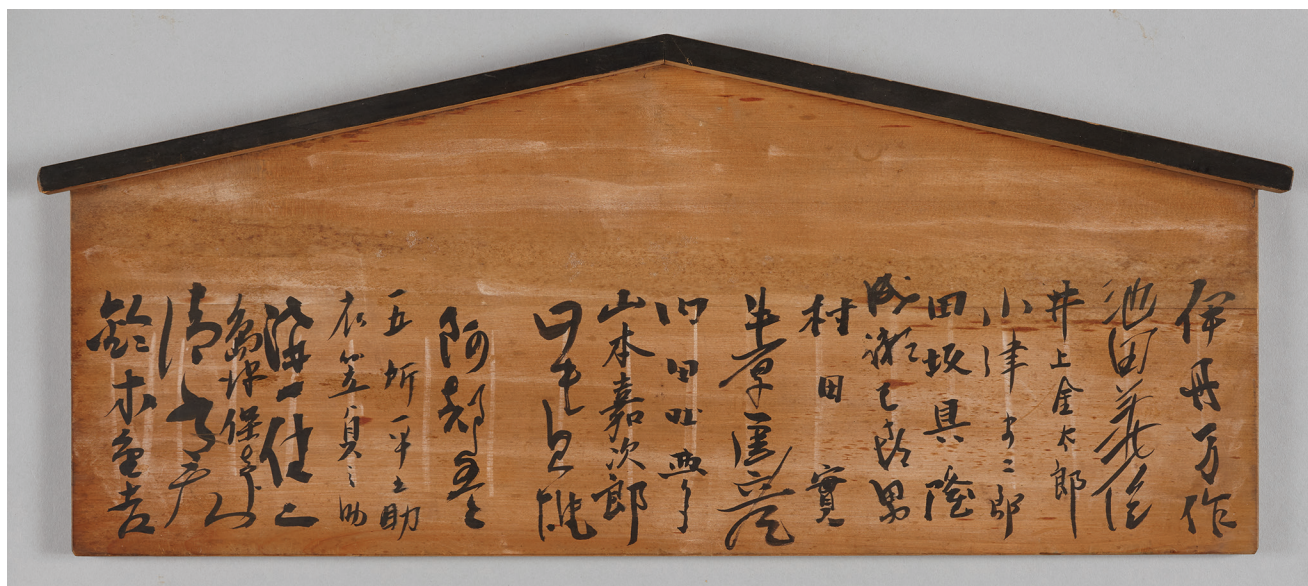 伊丹万作
池田義信
井上金太郎
小津安二郎
田坂具隆
成瀬巳喜男
村田實
牛原虚彦
内田吐夢
山本嘉次郎
阿部豊
五所平之助
衣笠貞之助
溝口健二
島津保次郎
清水宏
鈴木重吉